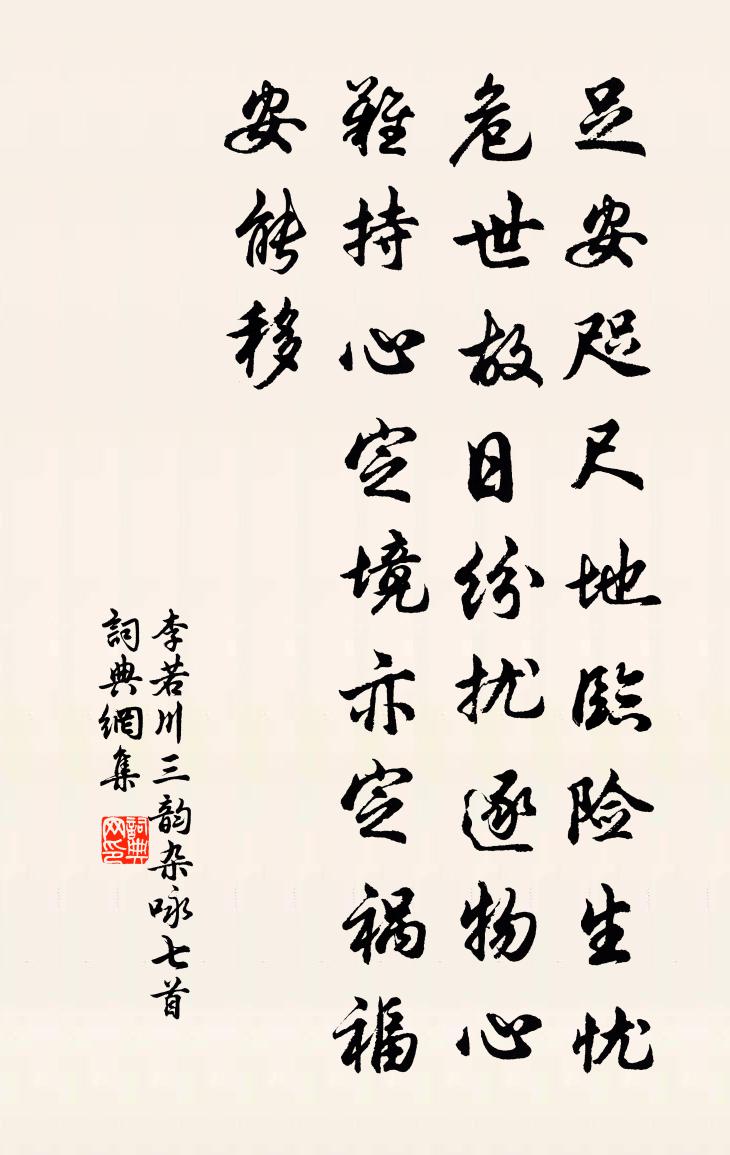 足安咫尺地臨险生忧
危世故日纷扰逐物心
難持心定境亦定祸福
安能移
李若川三韵杂咏七首
詞典網集
詞典网印